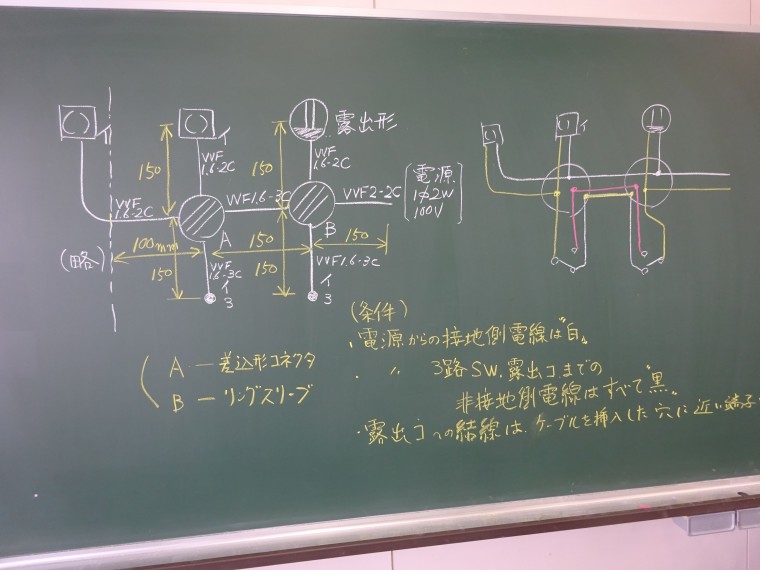 露出形
イ
イ
150
VVF
1.6-2C
150
VVF
1.6-2C
VVF
1.6-2C
VVF1.6-3C
VVF2-2C
電源
1φ2W
100V
A
B
(略)
100mm
150
150
150
VVF
1.6-3C
150
VVF1.6-3C
イ
3
イ
3
イ
(条件)
・電源からの接地側電線は"白"
・ 〃 3路SW.露出コまでの
非接地側電線はすべて"黒"
・露出コへの結線は、ケーブルを挿入した穴に近い端子
A ー 差込形コネクタ
B ー リングスリーブ